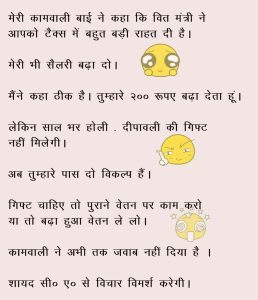 मेरी कामवाली बाई ने कहा कि वित मंत्री ने
आपको टैक्स में बहुत बड़ी राहत दी है।
मेरी भी सैलरी बढ़ा दो।
मैंने कहा ठीक है। तुम्हारे २०० रूपए बढ़ा देता हूं।
लेकिन साल भर होली . दीपावली की गिफ्ट
नहीं मिलेगी।
अब तुम्हारे पास दो विकल्प हैं।
गिफ्ट चाहिए तो पुराने वेतन पर काम करो
या तो बढ़ा हुआ वेतन ले लो।
कामवाली ने अभी तक जवाब नहीं दिया है ।
शायद सी० ए० से विचार विमर्श करेगी।